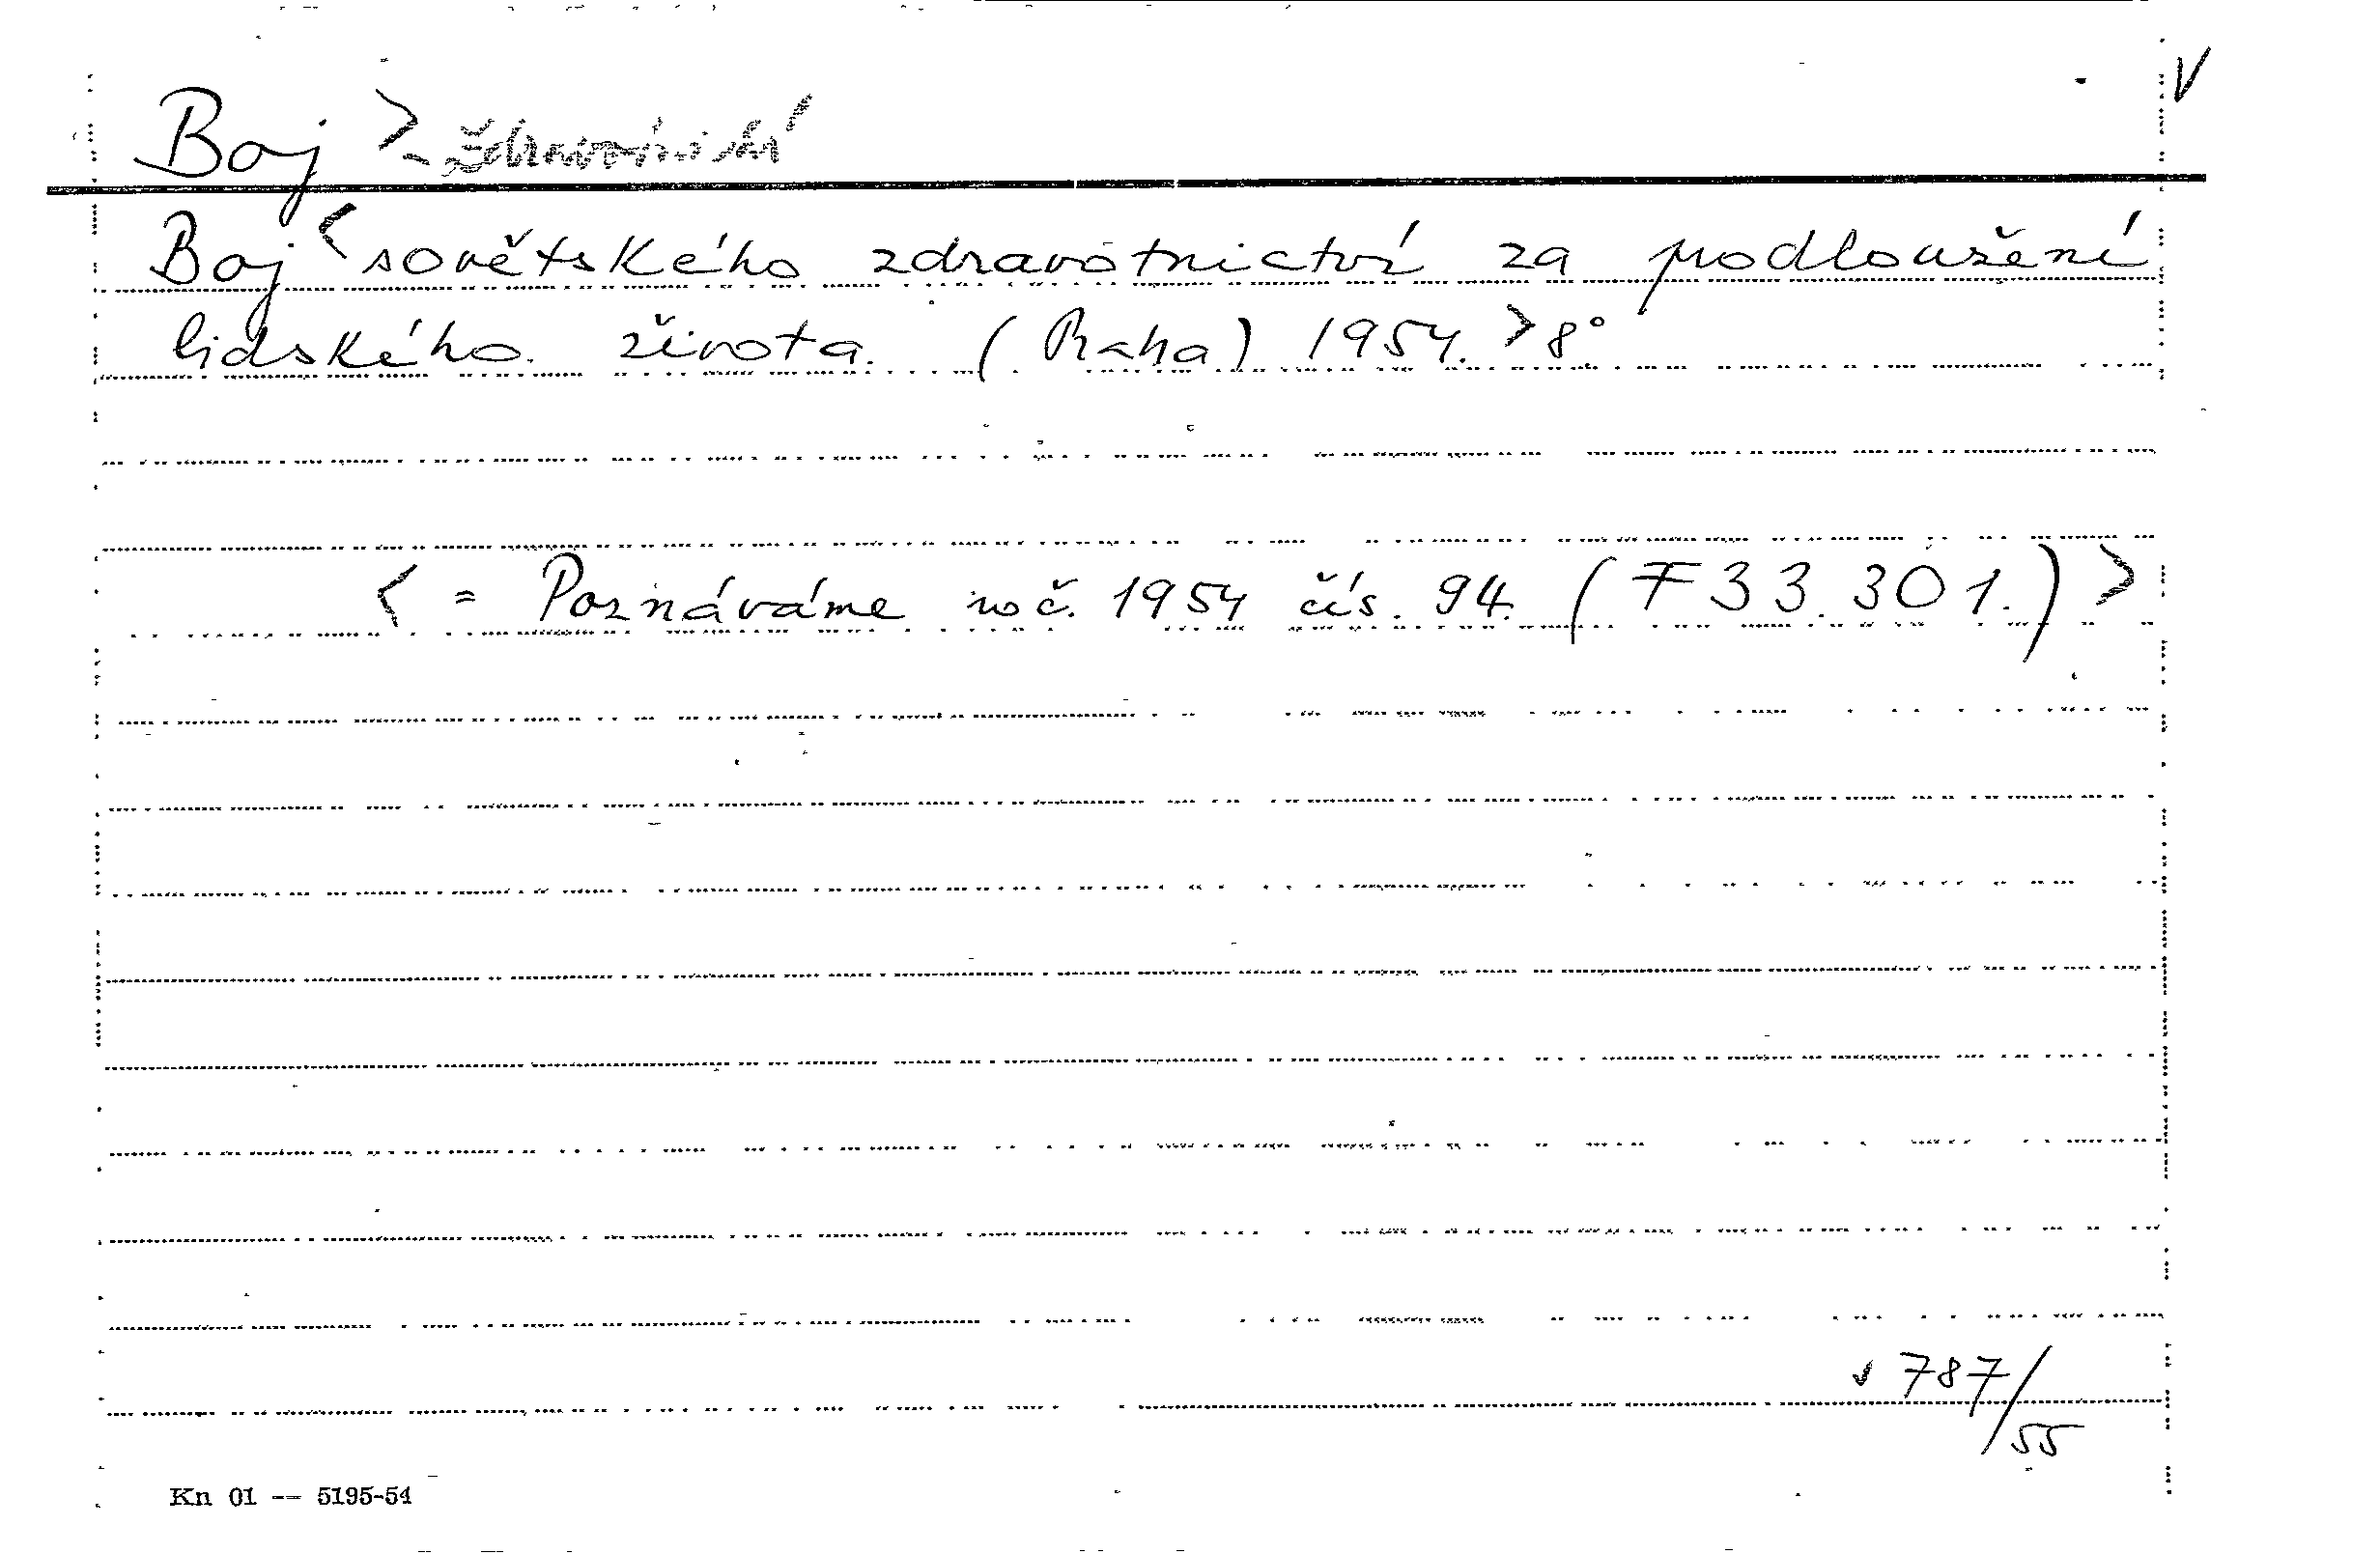 Boj >
Boj < sovětského zdravotnictví za prodloužení
lidského života. (Praha) 1954. > 8°
< = Poznáváme roč. 1954 čís. 94. (F 33.301.) >
787/55
Kn 01 -- 5195-54